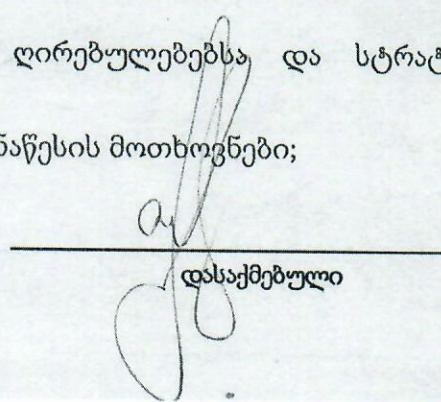 ღირებულებებსა და სტრატ
ნაწესის მოთხოვნები;
დასაქმებული